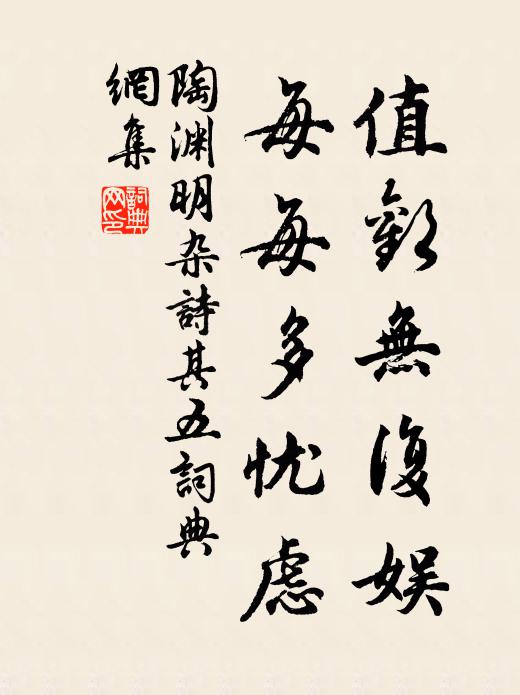 值歡無復娱
每每多忧慮
陶渊明杂詩其五詞典
網集
詞典
网印